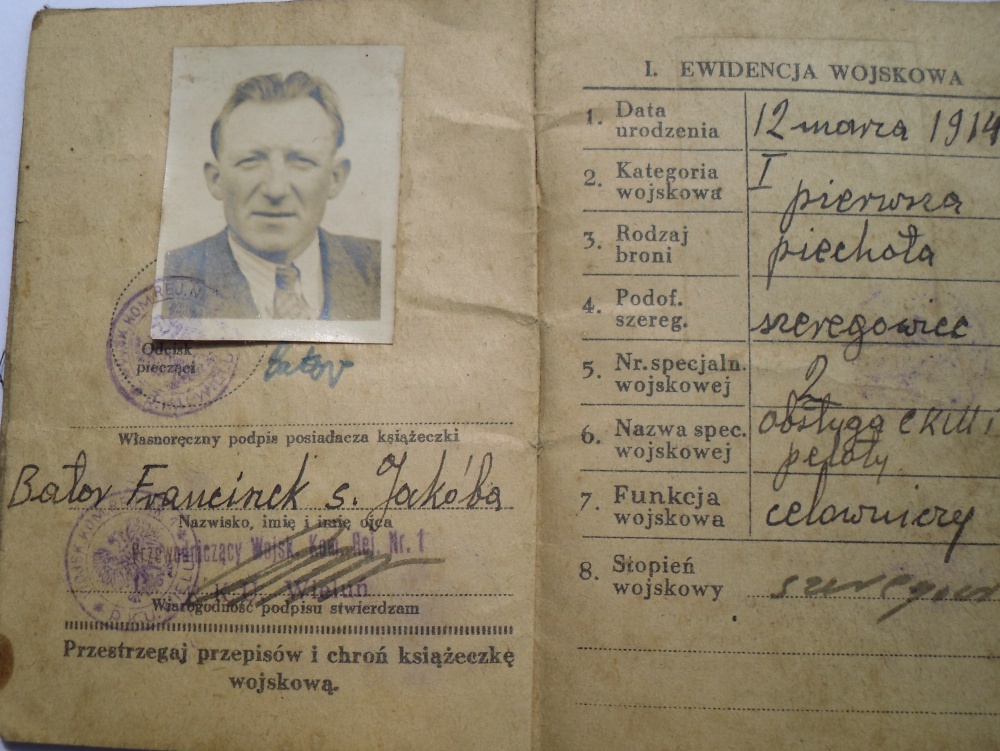 Odcisk
pieczęci
Bator
Własnoręczny podpis posiadacza książeczki
Bator Franciszek s. Jakóba
Nazwisko, imię i imię ojca
Przewodniczący Wojsk. Kom. Rej. Nr. 1
R.K.U. Wieluń
Wiarogodność podpisu stwierdzam
Przestrzegaj przepisów i chroń książeczkę
wojskową.
I. EWIDENCJA WOJSKOWA
1. Data urodzenia 12 marca 1914
2. Kategoria wojskowa I pierwsza
3. Rodzaj broni piechota
4. Podof. szereg. szeregowiec
5. Nr. specjaln. wojskowej 2
6. Nazwa spec. wojskowej obsługa CKM i
7. Funkcja wojskowa celowniczy
8. Stopień wojskowy szeregow